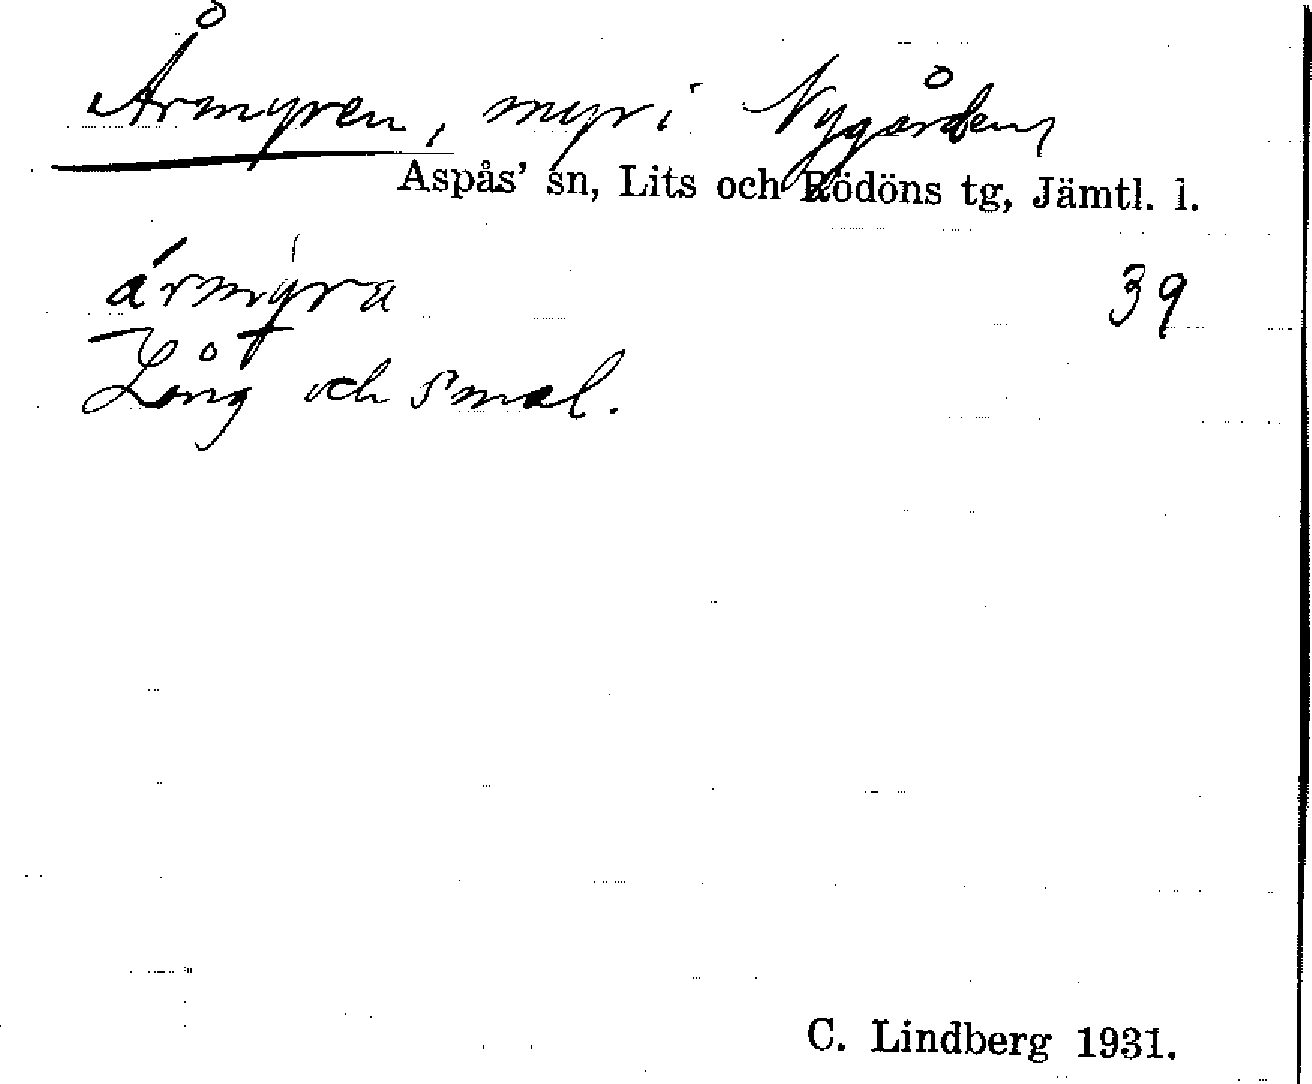 Årmyren, myr i Nygården,
Aspås' sn, Lits och Rödöns tg, Jämtl. l.
ármýra 39
Lång och smal.
C. Lindberg 1931.